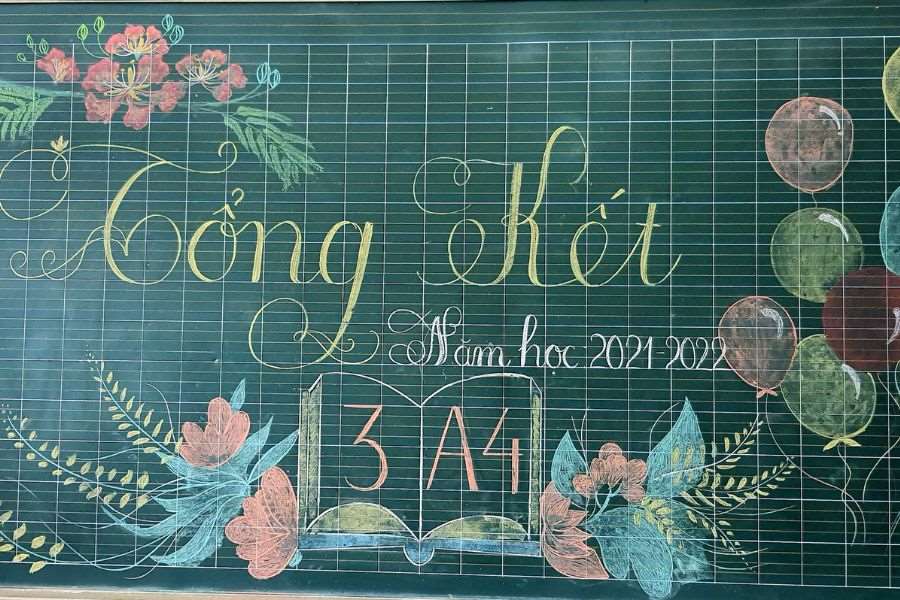 Tổng Kết
Năm học 2021-2022
3 A4